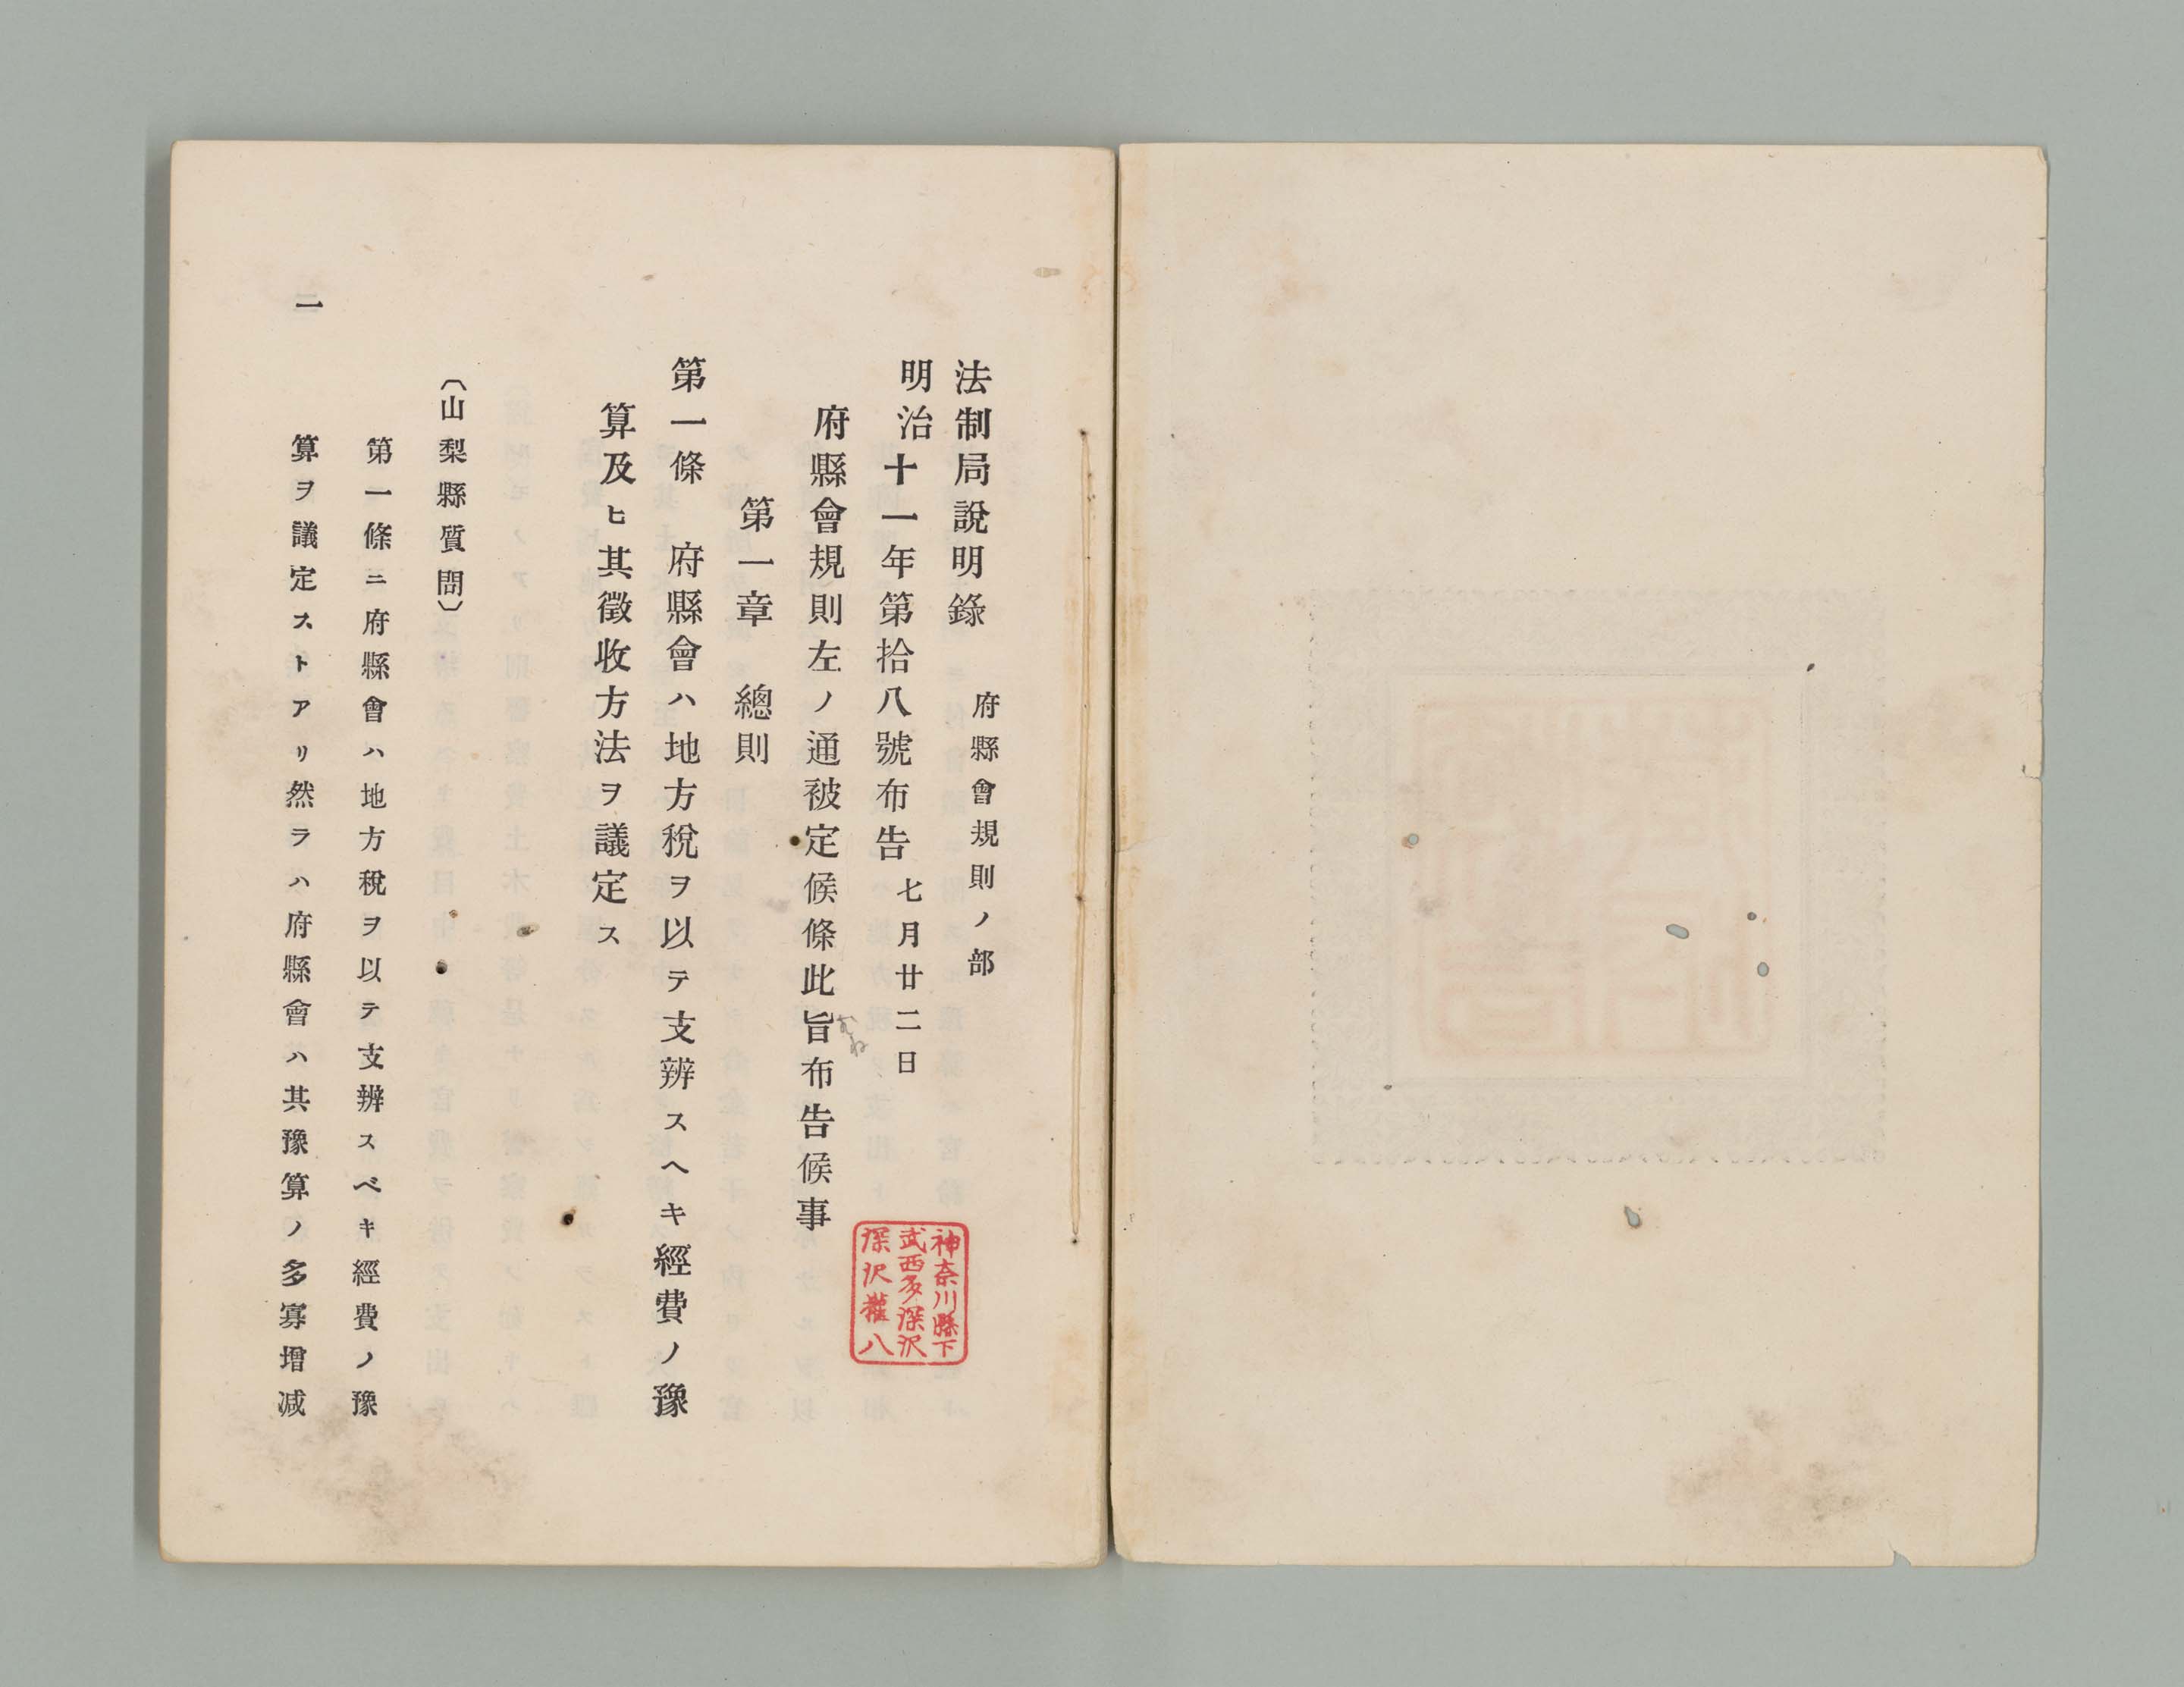 法制局説明錄　府縣會規則ノ部
明治十一年第拾八號布告　七月廿二日
府縣會規則左ノ通被定候條此旨布告候事
第一章　總則
第一條　府縣會ハ地方稅ヲ以テ支辨スヘキ經費ノ豫
算及ヒ其徵收方法ヲ議定ス
〔山梨縣質問〕
第一條ニ府縣會ハ地方稅ヲ以テ支辨スベキ經費ノ豫
算ヲ議定ストアリ然ラハ府縣會ハ其豫算ノ多寡增减
一
神奈川縣下
武西多深沢
深沢權八